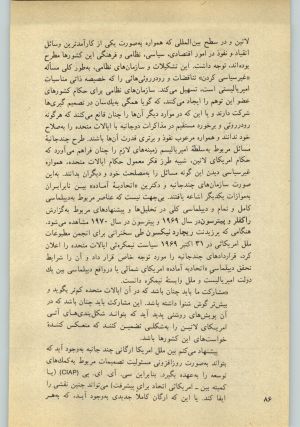 لاتین و در سطح بین‌المللی که همواره به‌صورت یکی از کارآمدترین وسائل
انقیاد و نفوذ در امور اقتصادی، سیاسی، نظامی و فرهنگی این کشورها مطرح
بوده‌اند، توجه داشت. این تشکیلات و سازمان‌های نظامی، بطور کلی مسأله
«غیرسیاسی کردن» تناقضات و رودرروئی‌هائی را که خصیصه ذاتی مناسبات
امپریالیستی است، تسهیل می‌کند. سازمان‌های نظامی برای حکام کشورهای
عضو این توهم را ایجاد می‌کنند، که گویا همگی به‌یکسان در تصمیم گیری‌ها
شرکت دارند و یا این که در موارد دیگر آن‌ها را چنان قانع می‌کنند که هرگونه
رودرروئی و برخورد مستقیم در مذاکرات دوجانبه با ایالات متحده را به‌صلاح
خود ندانند و همواره مرعوب نفوذ و برتری قدرت آن‌ها باشند. طرح چندجانبهٔ
مسائل مربوط به‌سلطهٔ امپریالیسم زمینه‌های لازم را چنان فراهم می‌آورد که
حکام امریکای لاتین، شبیه طرز فکر معمول حکام ایالات متحده، همواره
غیرسیاسی دیدن این گونه مسائل را به‌مصلحت خود و دیگران بدانند. به‌این
صورت سازمان‌های چندجانبه و دکترین «اتحادیهٔ آماده» بین نابرابران
به‌موازات یکدیگر اشاعه یافتند. بی‌جهت نیست که عناصر مربوط به‌دیپلماسی
کامل و تمام و دیپلماسی کلی در تحلیل‌ها و پیشنهادهای مربوط به‌گزارش
راکفلر و پیترسون در سال ۱۹۶۹ و پیترسون در سال ۱۹۷۰ مشاهده می‌شود.
هنگامی که پرزیدنت ریچارد نیکسون طی سخنرانی برای انجمن مطبوعات
ملل امریکائی در ۳۱ اکتبر ۱۹۶۹ سیاست نیمکره‌ئی ایالات متحده را اعلان
کرد، قرارداد چندجانبه را مورد توجه خاص قرار داد و آن را شرایط
تحقق دیپلماسی «اتحادیه آماده» امریکای شمالی با درواقع دیپلماسی بین یك
دولت امپریالیست و ملل وابستهٔ نیمکره دانست.
«مشارکت ما باید چنان باشد که در آن ایالات متحده کم‌تر بگوید و
بیش‌تر گوش شنوا داشته باشد. این مشارکت باید چنان باشد که در
آن پویش‌های روشنی پدید آید که بتواند شکل‌بندی‌های آتی
امریکای لاتین را به‌شکلی تضمین کند که منعکس کنندهٔ
خواست‌های این کشورها باشد.
پیشنهاد می‌کنم بین ملل امریکا ارگانی چند جانبه به‌وجود آید که
بتواند به‌صورت روزافزونی مسئولیت تصمیمات مربوط به‌کمک‌های
توسعه را به‌عهده بگیرد. بنابراین سی. آی. ای. پی (CIAP) (یا
کمیته بین - امریکائی اتحاد برای پیشرفت) می‌تواند چنین نقشی را
ایفا کند. یا این که ارگان کاملا جدیدی به‌وجود آید، که به‌هر
۸۶